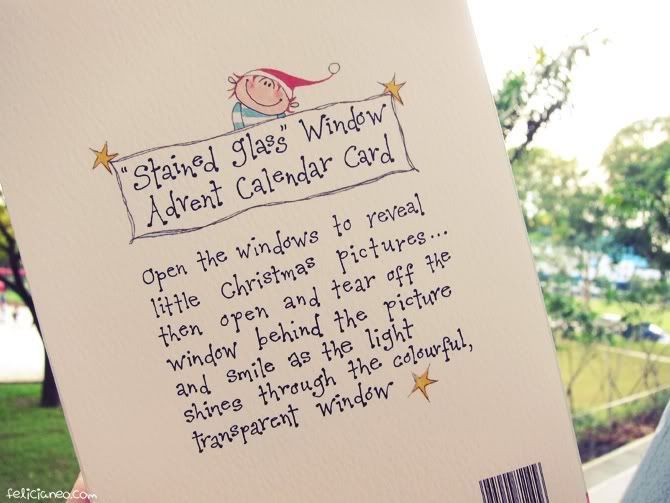 "Stained glass" Window
Advent Calendar Card
Open the windows to reveal
little Christmas pictures...
then open and tear off the
window behind the picture
and smile as the light
shines through the colourful,
transparent window
felicianeo.com